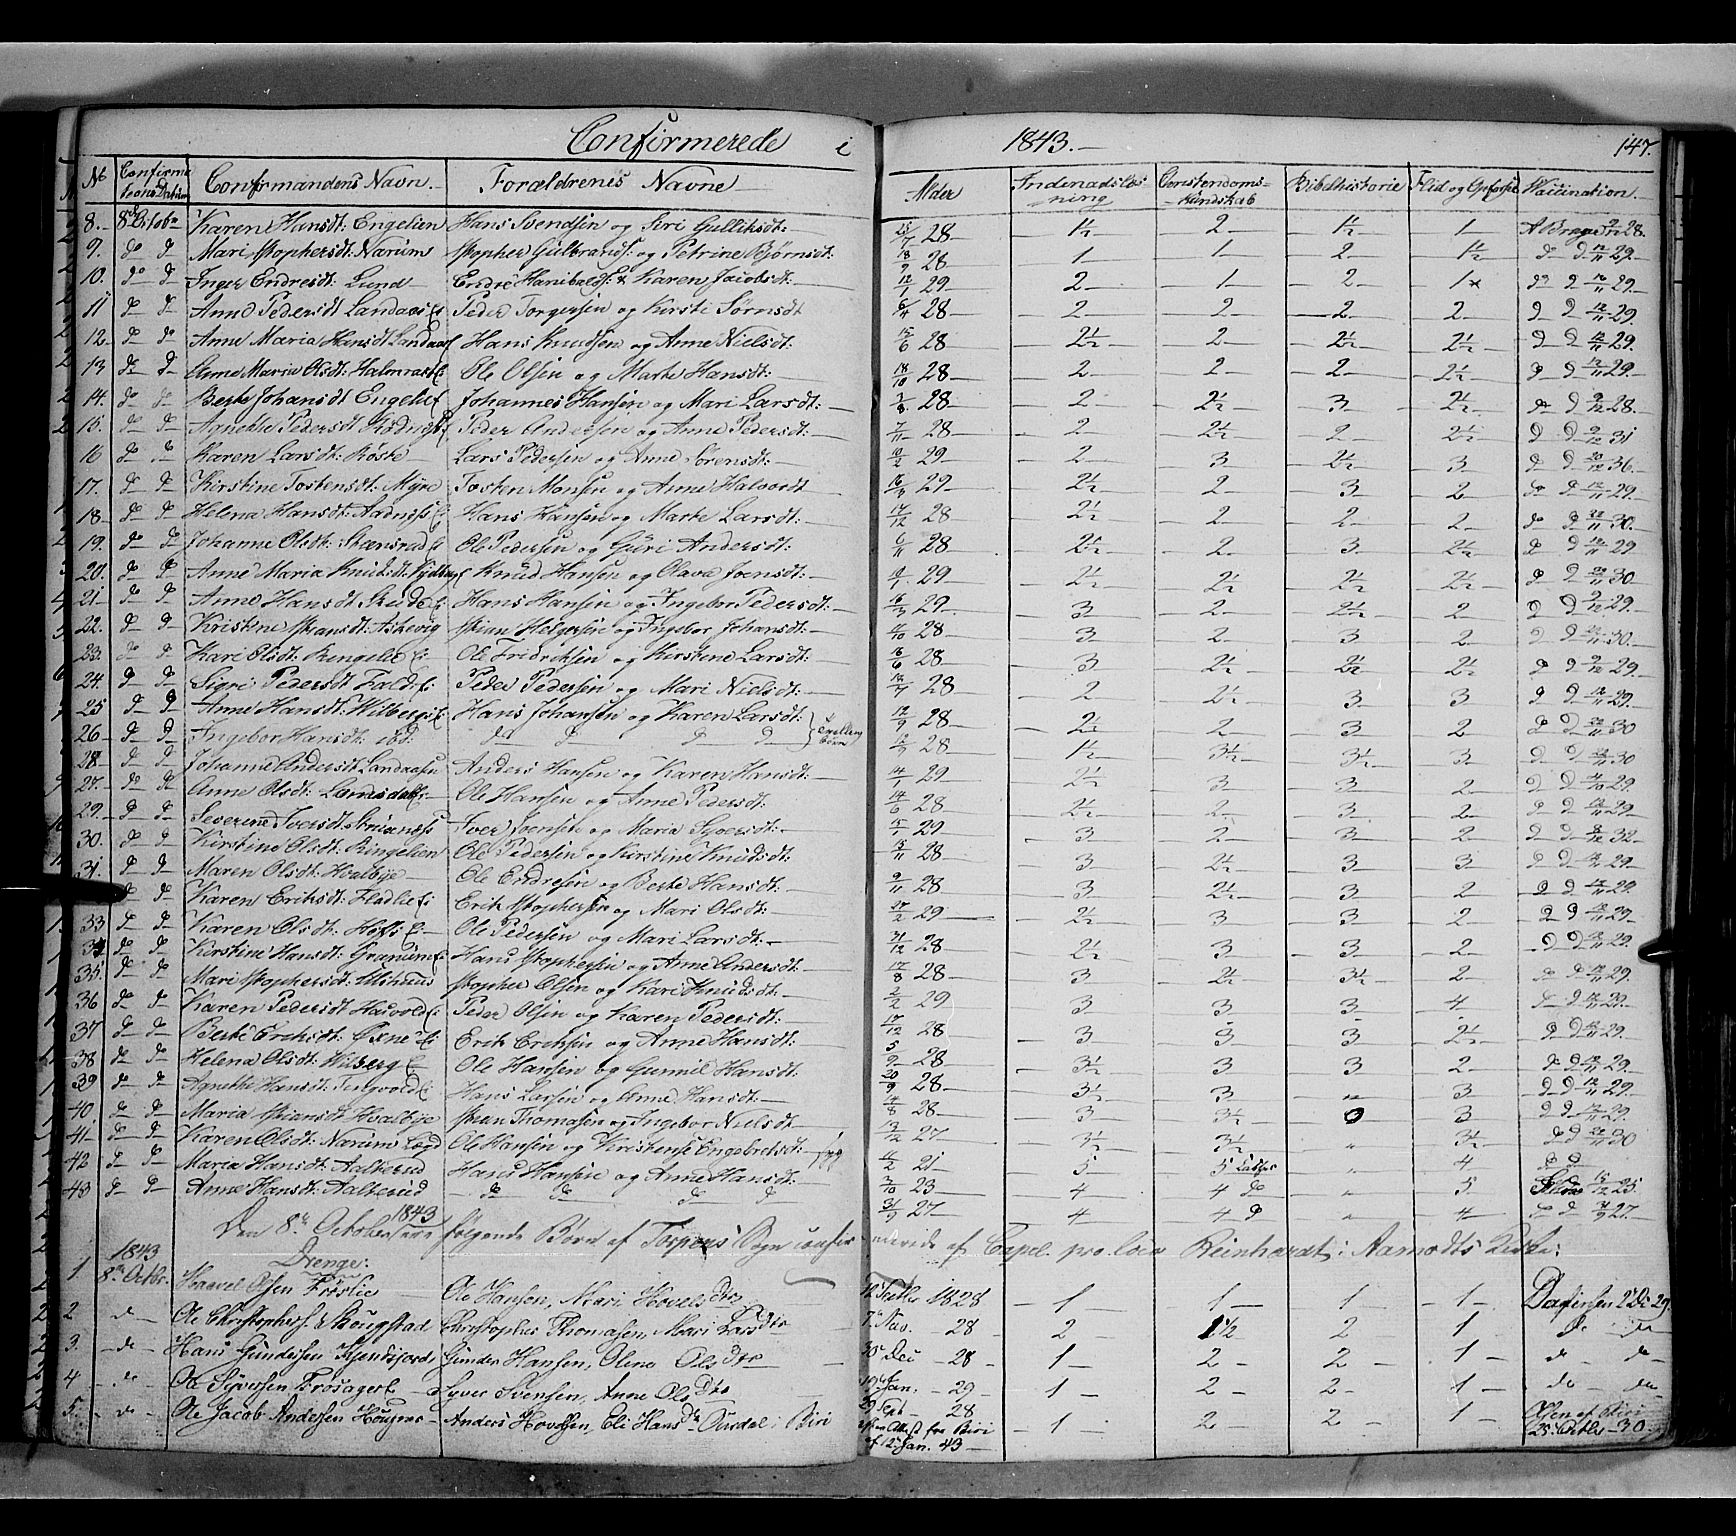 Confirmerede i 1843. 147.
No Confirmations Datum Confirmandens Navn. Forældrenes Navne Alder Indenadslæsning Christendoms-kundskab Bibelhistorie Flid og Opførsel Vaccination.
8. 8de Octobr Karen Hansdt: Engelien Hans Svendsen og Siri Gulliksdt: 25/7 28 1½ 2 1½ 1 28.
9. do do Mari Stophersdt: Nærum Stopher Gulbrands: og Petrine Bjørnsdt: 18/9 28 1 1 2 1½ do d 12/11 29.
10. do do Inger Endresdt: Lund Endre Hanibalds: & Karen Jacobsdt: 12/1 29 2 1 2 1 do d 29.
11 do do Anne Pedersdt Landaas Peder Torgersen og Kirsti 6/4 28 2 2 2 2 d d 12/11 29.
12. do do Anne Maria Hansdt Landaas Hans Knudsen og Anne Nielsdt: 15/6 28 2½ 2 2½ 2½ d d 12/11 29.
13 do do Anne Maria Olsdt: Ole Olsen og Marte Hansdt: 18/10 28 2 2 2 2½ d d 12/11 29.
14. do do Berte Johansdt Engelie Johannes Hansen og Mari Larsdt: 28 2 2½ 3 2½ do d 28.
15. do do Agnethe Pedersdt Peder Andersen og Anne Pedersdt: 7/11 28 2 2½ 2 2½ d d 31
16 do do Karen Larsdt: Røste Lars Pedersen og Anne Sørensdt: 29 2 3 2½ 3 d d 20/12 36.
17. do do Kirstine Tostensdt: Myre Tosten Monsen og Anne Halvordt 29 2½ 2 3 2 do d 12/11 29.
18. do do Helena Hansdt: Aadnæss Hans Hansen og Marte Larsdt: 28 2½ 2 2 2 do d 30.
19. do do Johanne Olsdt: Ole Pedersen og Guri Andersdt: 6/11 28 2½ 2 3 2½ d d 12/11 29
20. do do Anne Maria Knudsdt: Knud Hansen og Olava Joensdt: 29 2½ 2½ 2½ 2½ d d 30
21 do do Anne Hansdt Hans Hansen og Ingebor Pedersdt: 16/3 29. 3 2 2½ 2 d d 29.
22. do do Kristine Askevig Helgesen og Ingebor Johansdt: 28 3 2 3 2 d d 30.
23. do do Kari Olsdt: Ringelie Ole Fredriksen og Kirstine Larsdt: 28 3 2½ 2½ 2½ d d 29.
24. do do Sigri Pedersdt Peder Pedersen og Mari Nielsdt: 28 2 2½ 3 3 d d 29.
25 do do Anne Hansdt: Wilbergs Hans Johansen og Karen Larsdt: 12/9 28 2½ 2 3 2 d d 30
26 do do Ingebor Hansdt: ibd: do do do do } Tvillingbørn 12/9 28 1½ 3½ 3½ 3 d d 30
28 do do Johanne Andersdt Landaasen Anders Hansen og Karen Hansdt: 14/1 29 2½ 3 3 2 d d 29.
27. do do Anne Olsdt: Ole Hansen og Anne Pedersdt: 14/6 28 2½ 3 3 2 d d 29
29. do do Severine Iversdt: Iver Joensen og Maria Syversdt: 29 3 2 3 2 d d 32
30. do do Kirstine Olsdt: Ringelien Ole Pedersen og Kirstine Knudsdt: 28 3 2½ 3 3 d d 29.
31. do do Maren Olsdt: Hvalbye Ole Endresen og Berte Hansdt: 9/11 28 3 2½ 3 2 d d 29.
do Karen Eriksdt: Fladlie Erik Stophersen og Mari Olsdt: 29 2½ 3 3 2 d d 29.
33 do do Karen Olsdt: Hofs Ole Pedersen og Mari Larsdt: 31/12 28 2½ 3 3 2 d d 29.
34 do do Kirstine Hansdt: Granum Hans Stophersen og Anne Andersdt: 17/8 28 3 2½ 3½ 2 d d 29.
35. do do Mari Stophersdt: Stopher Olsen og Kari Knudsdt: 29 3 3 3 4 d d 29.
36 do do Karen Pedersdt: Peder Olsen og Karen Pedersdt: 17/12 28 3 3 3 2½ d d 29.
37 do do Berte Eriksdt: Øxne Erik Eriksen og Anne Hansdt: 28 3½ 3 3 2 d d 29.
38 do do Helena Olsdt: Wiberg Ole Hansen og Gunnil Hansdt 20/9 28 3½ 3 " 3 d d 29.
39 do do Agnethe Hansdt: Hans Larsen og Anne Hansdt: 14/8 28 3 3½ 0 3 d d 29.
40 do do Maria Hvalbye Thomasen og Ingebor Nielsdt 13/12 27 3½ 3½ " 3½ d d 30
41 do do Karen Olsdt: Nærum Lægd Ole Hansen og Kristense Engebretsdt: 21 5 5 " 4 d d
42 do do Maria Hansdt: Aalterud Hans Hansen og Anne Hansdt: 3/10 23 4 4 do " 5. 25.
43 do do Anne Hansdt: Aalterud do do do do 31/9 27 4 4 d " 4 d d 27.
Den 8de October 1843 ere følgende Børn af Torpens Sogn confirmerede af Capel. pro loco Reinhardt i Aamodts Kirke:
Drenge:
1 1843 8de Octbr. Haavel Olsen Frøslie Ole Hansen, Mari Hovelsdtr 1828 1 1 1 1 29.
2 do Ole Christophers. Skougstad Christopher Thomasen, Mari Larsdtr 7de Nov. 28 2 1½ 2 1 do do
3. do Hans Gundersen Gunder Hansen, Oline Olsdtr 30 Dec 28 1 2 2 1 do do
4 do Ole Syversen Frøsager Syver Svensen, Anne Olsdtr 19 Jan. 29 1 2 2 1 do do
5. do Ole Jacob Andersen Anders Hovelsen, Eli Hansdtr Aurdal i Biri 29 Sept 28 efter Attest fra Biri af 12 Jan. 43 1 2 2 1 Olsen af Biri 25 Octbr 30.